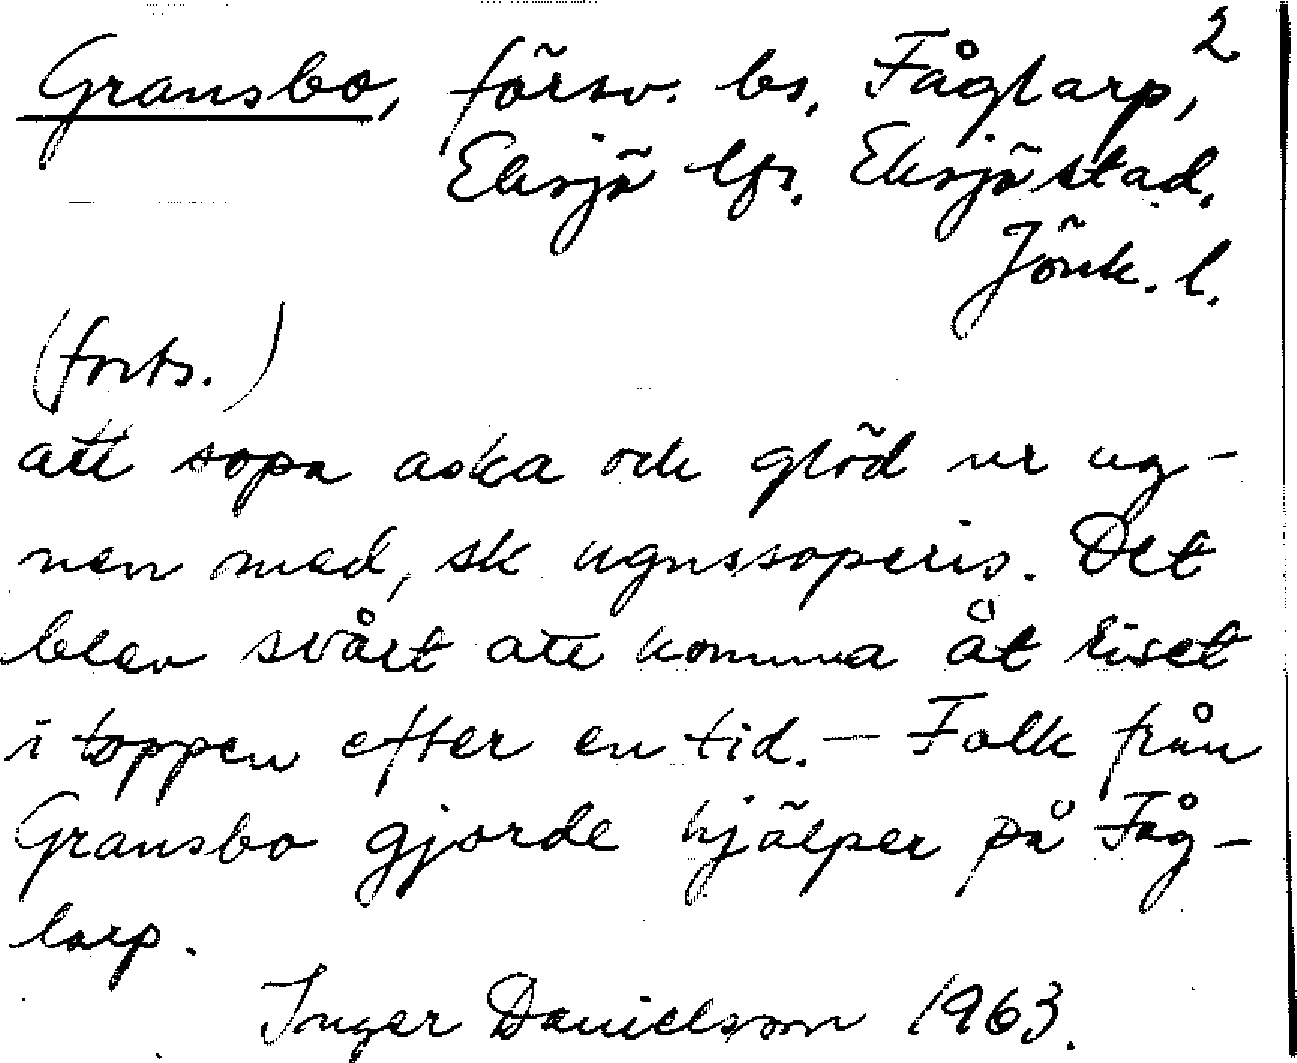 2
Gransbo, försv. bs. Fåglarp,
Eksjö lfs. Eksjö stad.
Jönk. l.
(forts.)
att sopa aska och glöd ur ug-
nen med, sk ugnssoperis. Det
blev svårt att komma åt riset
i toppen efter en tid. — Folk från
Gransbo gjorde hjälper på Fåg-
larp.
Inger Danielsson 1963.